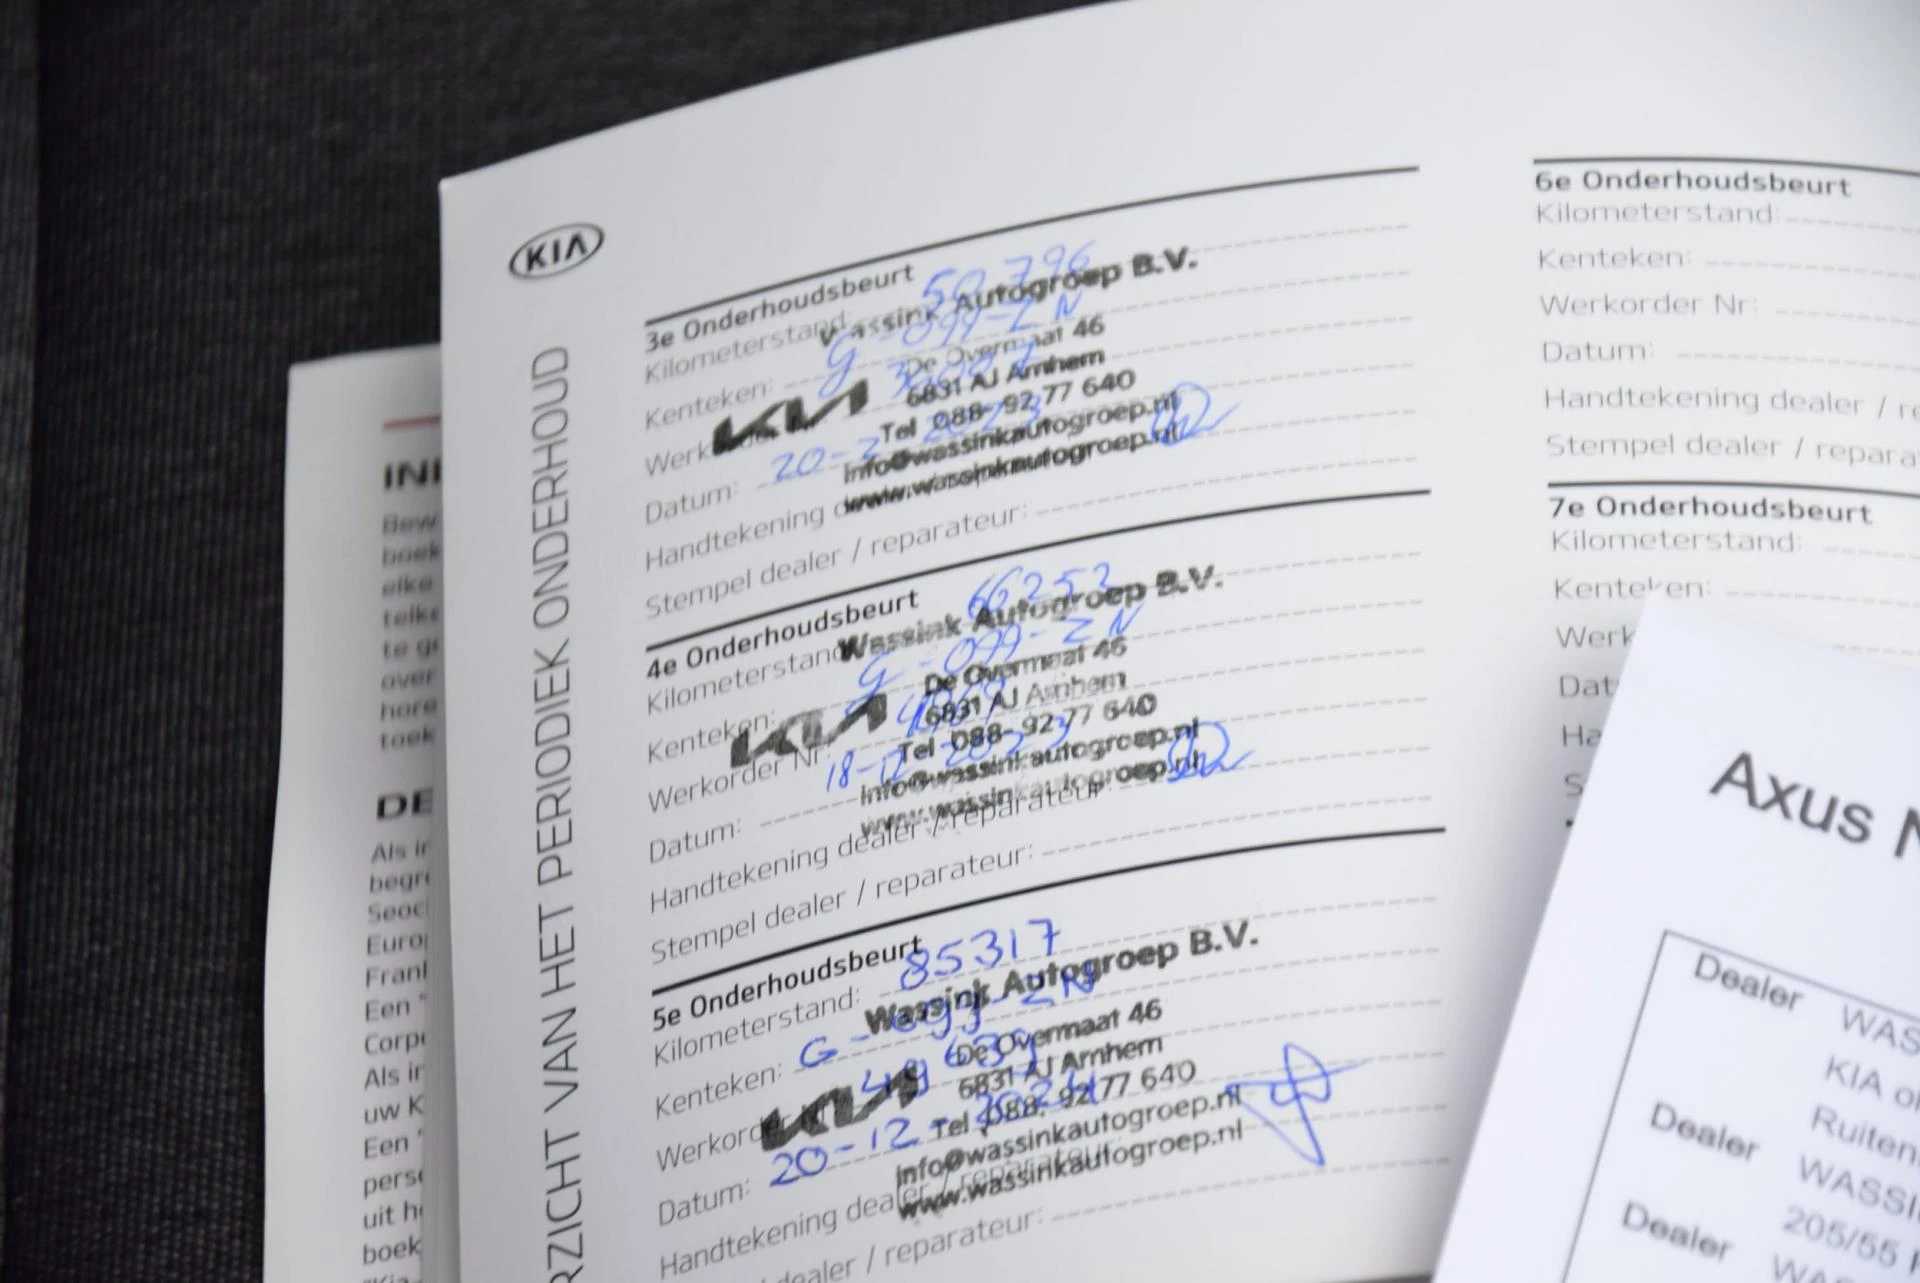 KIA
RZICHT VAN HET PERIODIEK ONDERHOUD
3e Onderhoudsbeurt
Kilometerstand: 50796
Wassink Autogroep B.V.
Kenteken: G-099-ZN
De Overmaat 46
6831 AJ Arnhem
KIA
Tel 088-92 77 640
Datum: 20-
info@wassinkautogroep.nl
www.wassinkautogroep.nl
Handtekening
Stempel dealer / reparateur:
4e Onderhoudsbeurt
Kilometerstand 66253
Wassink Autogroep B.V.
Kenteken: G-099-ZN
De Overmaat 46
6831 AJ Arnhem
KIA
Werkorder Nr:
Tel 088-92 77 640
18-12-2023
info@wassinkautogroep.nl
Datum:
www.wassinkautogroep.nl
Handtekening dealer / reparateur:
Stempel dealer / reparateur:
5e Onderhoudsbeurt
Kilometerstand: 85317
Wassink Autogroep B.V.
Kenteken: G-099-ZN
De Overmaat 46
6831 AJ Arnhem
KIA
Tel 088-92 77 640
Datum: 20-12-2024
info@wassinkautogroep.nl
www.wassinkautogroep.nl
Handtekening dealer / reparateur:
dealer / reparateur:
6e Onderhoudsbeurt
Kilometerstand:
Kenteken:
Werkorder Nr:
Datum:
Handtekening dealer / re
Stempel dealer / repara
7e Onderhoudsbeurt
Kilometerstand:
Kenteken:
Werk
Dat
Ha
S
Axus N
Dealer WAS
KIA
Ruiten
Dealer WASSI
205/55
Dealer WA
INI
Bew
boek
elke
telke
te g
over
hore
toek
DE
Als ir
begr
Seoc
Euro
Frank
Een "
Corp
Als ir
uw K
Een "
pers
uit h
boek